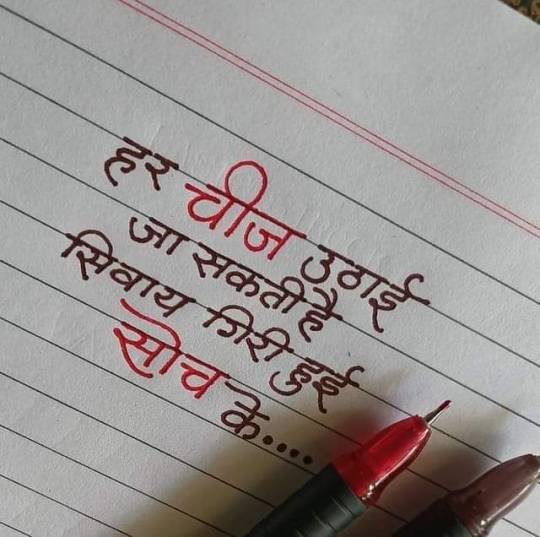 हर चीज उठाई
जा सकती है
सिवाय गिरी हुई
सोच के....